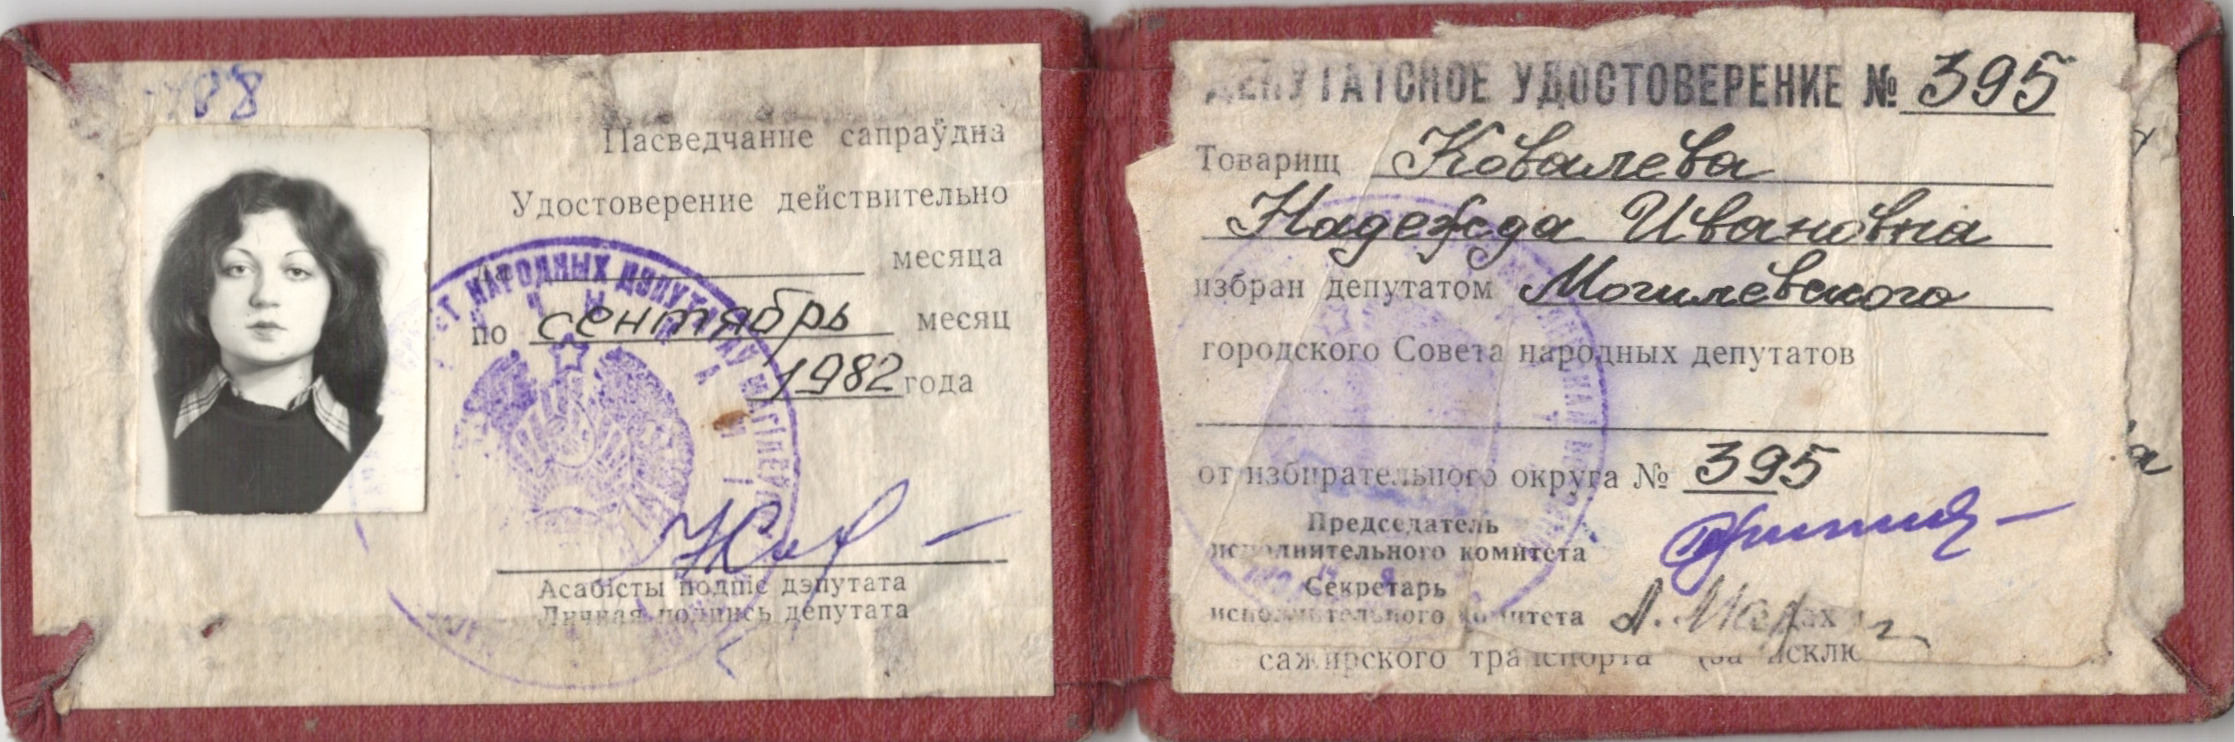 88
Пасведчанне сапраўдна
Удостоверение действительно
месяца
по сентябрь месяц
1982 года
НАРОДНЫХ ДЭПУТАТАЎ
Асабісты подпіс дэпутата
Личная подпись депутата
ДЕПУТАТСКОЕ УДОСТОВЕРЕНИЕ № 395
Товарищ Ковалева
Надежда Ивановна
избран депутатом Могилевского
городского Совета народных депутатов
от избирательного округа № 395
Председатель
исполнительного комитета
Секретарь
исполнительного комитета
сажирского транспорта (за исклю